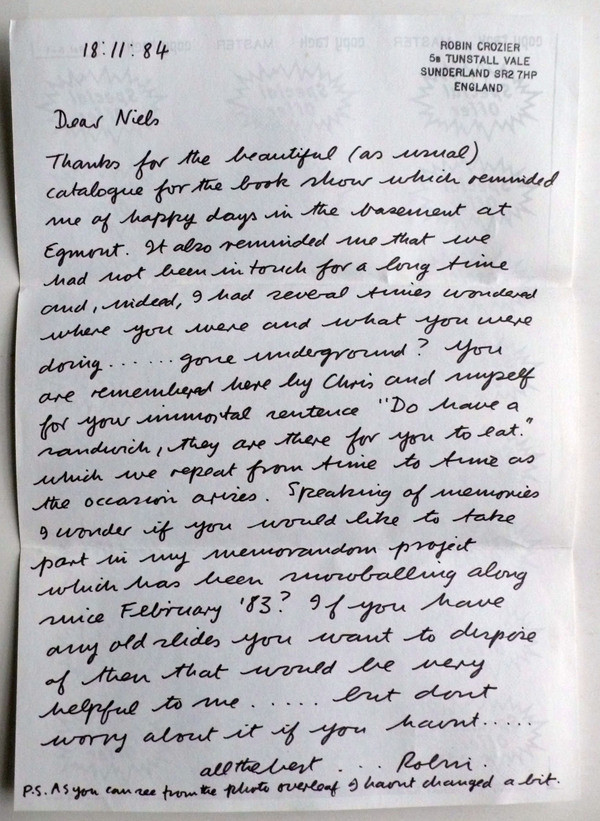 18:11:84
ROBIN CROZIER
5B TUNSTALL VALE
SUNDERLAND SR2 7HP
ENGLAND
Dear Niels
Thanks for the beautiful (as usual)
catalogue for the book show which reminded
me of happy days in the basement at
Egmont. It also reminded me that we
had not been in touch for a long time
and, indeed, I had several times wondered
where you were and what you were
doing ...... gone underground? You
are remembered here by Chris and myself
for your immortal sentence "Do have a
sandwich, they are there for you to eat."
which we repeat from time to time as
the occasion arises. Speaking of memories
I wonder if you would like to take
part in my memorandom project
which has been snowballing along
since February '83? If you have
any old slides you want to dispose
of then that would be very
helpful to me ..... but dont
worry about it if you havnt.....
all the best ... Robin.
P.S. As you can see from the photo overleaf I havnt changed a bit.